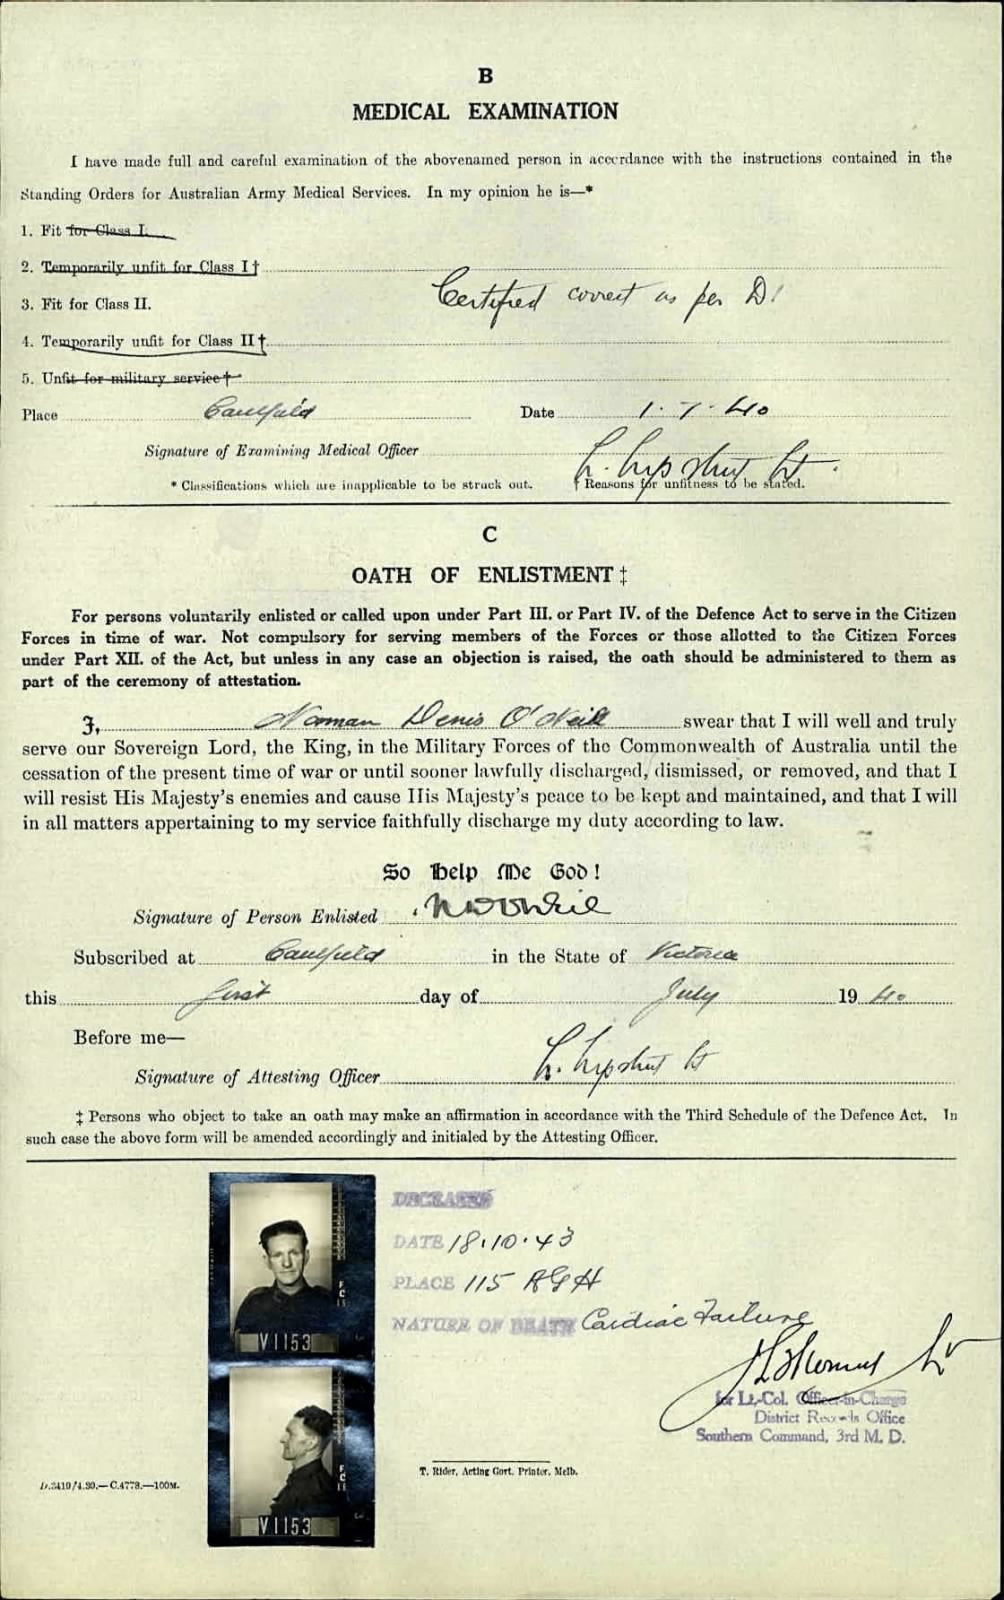 B
MEDICAL EXAMINATION
I have made full and careful examination of the abovenamed person in accordance with the instructions contained in the
Standing Orders for Australian Army Medical Services. In my opinion he is—*
1. Fit for Class I.
2. Temporarily unfit for Class I†
Certified correct as per D1
3. Fit for Class II.
4. Temporarily unfit for Class II†
5. Unfit for military service†
Place Caulfield Date 1.7.40
Signature of Examining Medical Officer L. Lipshut Lt.
* Classifications which are inapplicable to be struck out. † Reasons for unfitness to be stated.
C
OATH OF ENLISTMENT ‡
For persons voluntarily enlisted or called upon under Part III. or Part IV. of the Defence Act to serve in the Citizen
Forces in time of war. Not compulsory for serving members of the Forces or those allotted to the Citizen Forces
under Part XII. of the Act, but unless in any case an objection is raised, the oath should be administered to them as
part of the ceremony of attestation.
I, Norman Denis O'Neill swear that I will well and truly
serve our Sovereign Lord, the King, in the Military Forces of the Commonwealth of Australia until the
cessation of the present time of war or until sooner lawfully discharged, dismissed, or removed, and that I
will resist His Majesty's enemies and cause His Majesty's peace to be kept and maintained, and that I will
in all matters appertaining to my service faithfully discharge my duty according to law.
So Help Me God!
Signature of Person Enlisted
Subscribed at Caulfield in the State of Victoria
this first day of July 19 40
Before me—
Signature of Attesting Officer L. Lipshut Lt
‡ Persons who object to take an oath may make an affirmation in accordance with the Third Schedule of the Defence Act. In
such case the above form will be amended accordingly and initialed by the Attesting Officer.
DECEASED
DATE 18.10.43
PLACE 115 AGH
NATURE OF DEATH Cardiac Failure
Lt
for Lt.-Col. Officer-in-Charge
District Records Office
Southern Command, 3rd M. D.
V1153
V1153
T. Rider, Acting Govt. Printer, Melb.
D.3419/4.39.—C.4778.—100M.